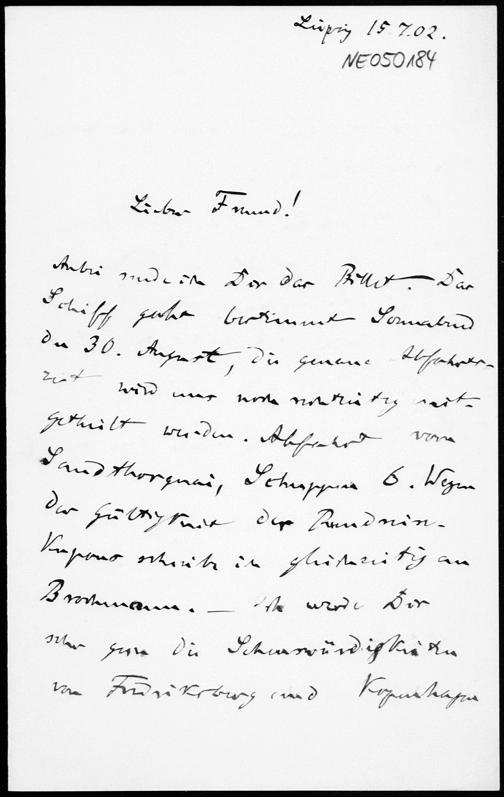 Leipzig 15.7.02.
NE050184
Lieber Freund!
Anbei sende ich Dir das Billet. Das
Schiff geht bestimmt Sonnabend
den 30. August, die genaue Abfahrts-
zeit wird uns noch rechtzeitig mit-
getheilt werden. Abfahrt vom
Sandthorquai, Schuppen 6. Wegen
der Gültigkeit der Rundreise-
Kupons schreibe ich gleichzeitig an
Brockmann. — Ich werde Dir
sehr gern die Sehenswürdigkeiten
von Fredriksborg und Kopenhagen